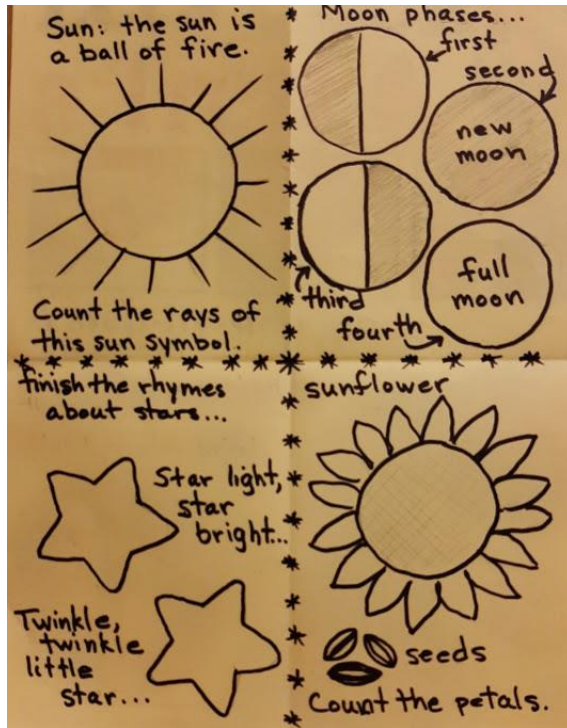 Sun: the sun is
a ball of fire.
Count the rays of
this sun symbol.
Moon phases...
first
second
new
moon
third
full
moon
fourth
finish the rhymes
about stars...
Star light,
star
bright...
Twinkle,
twinkle
little
star...
sunflower
seeds
Count the petals.